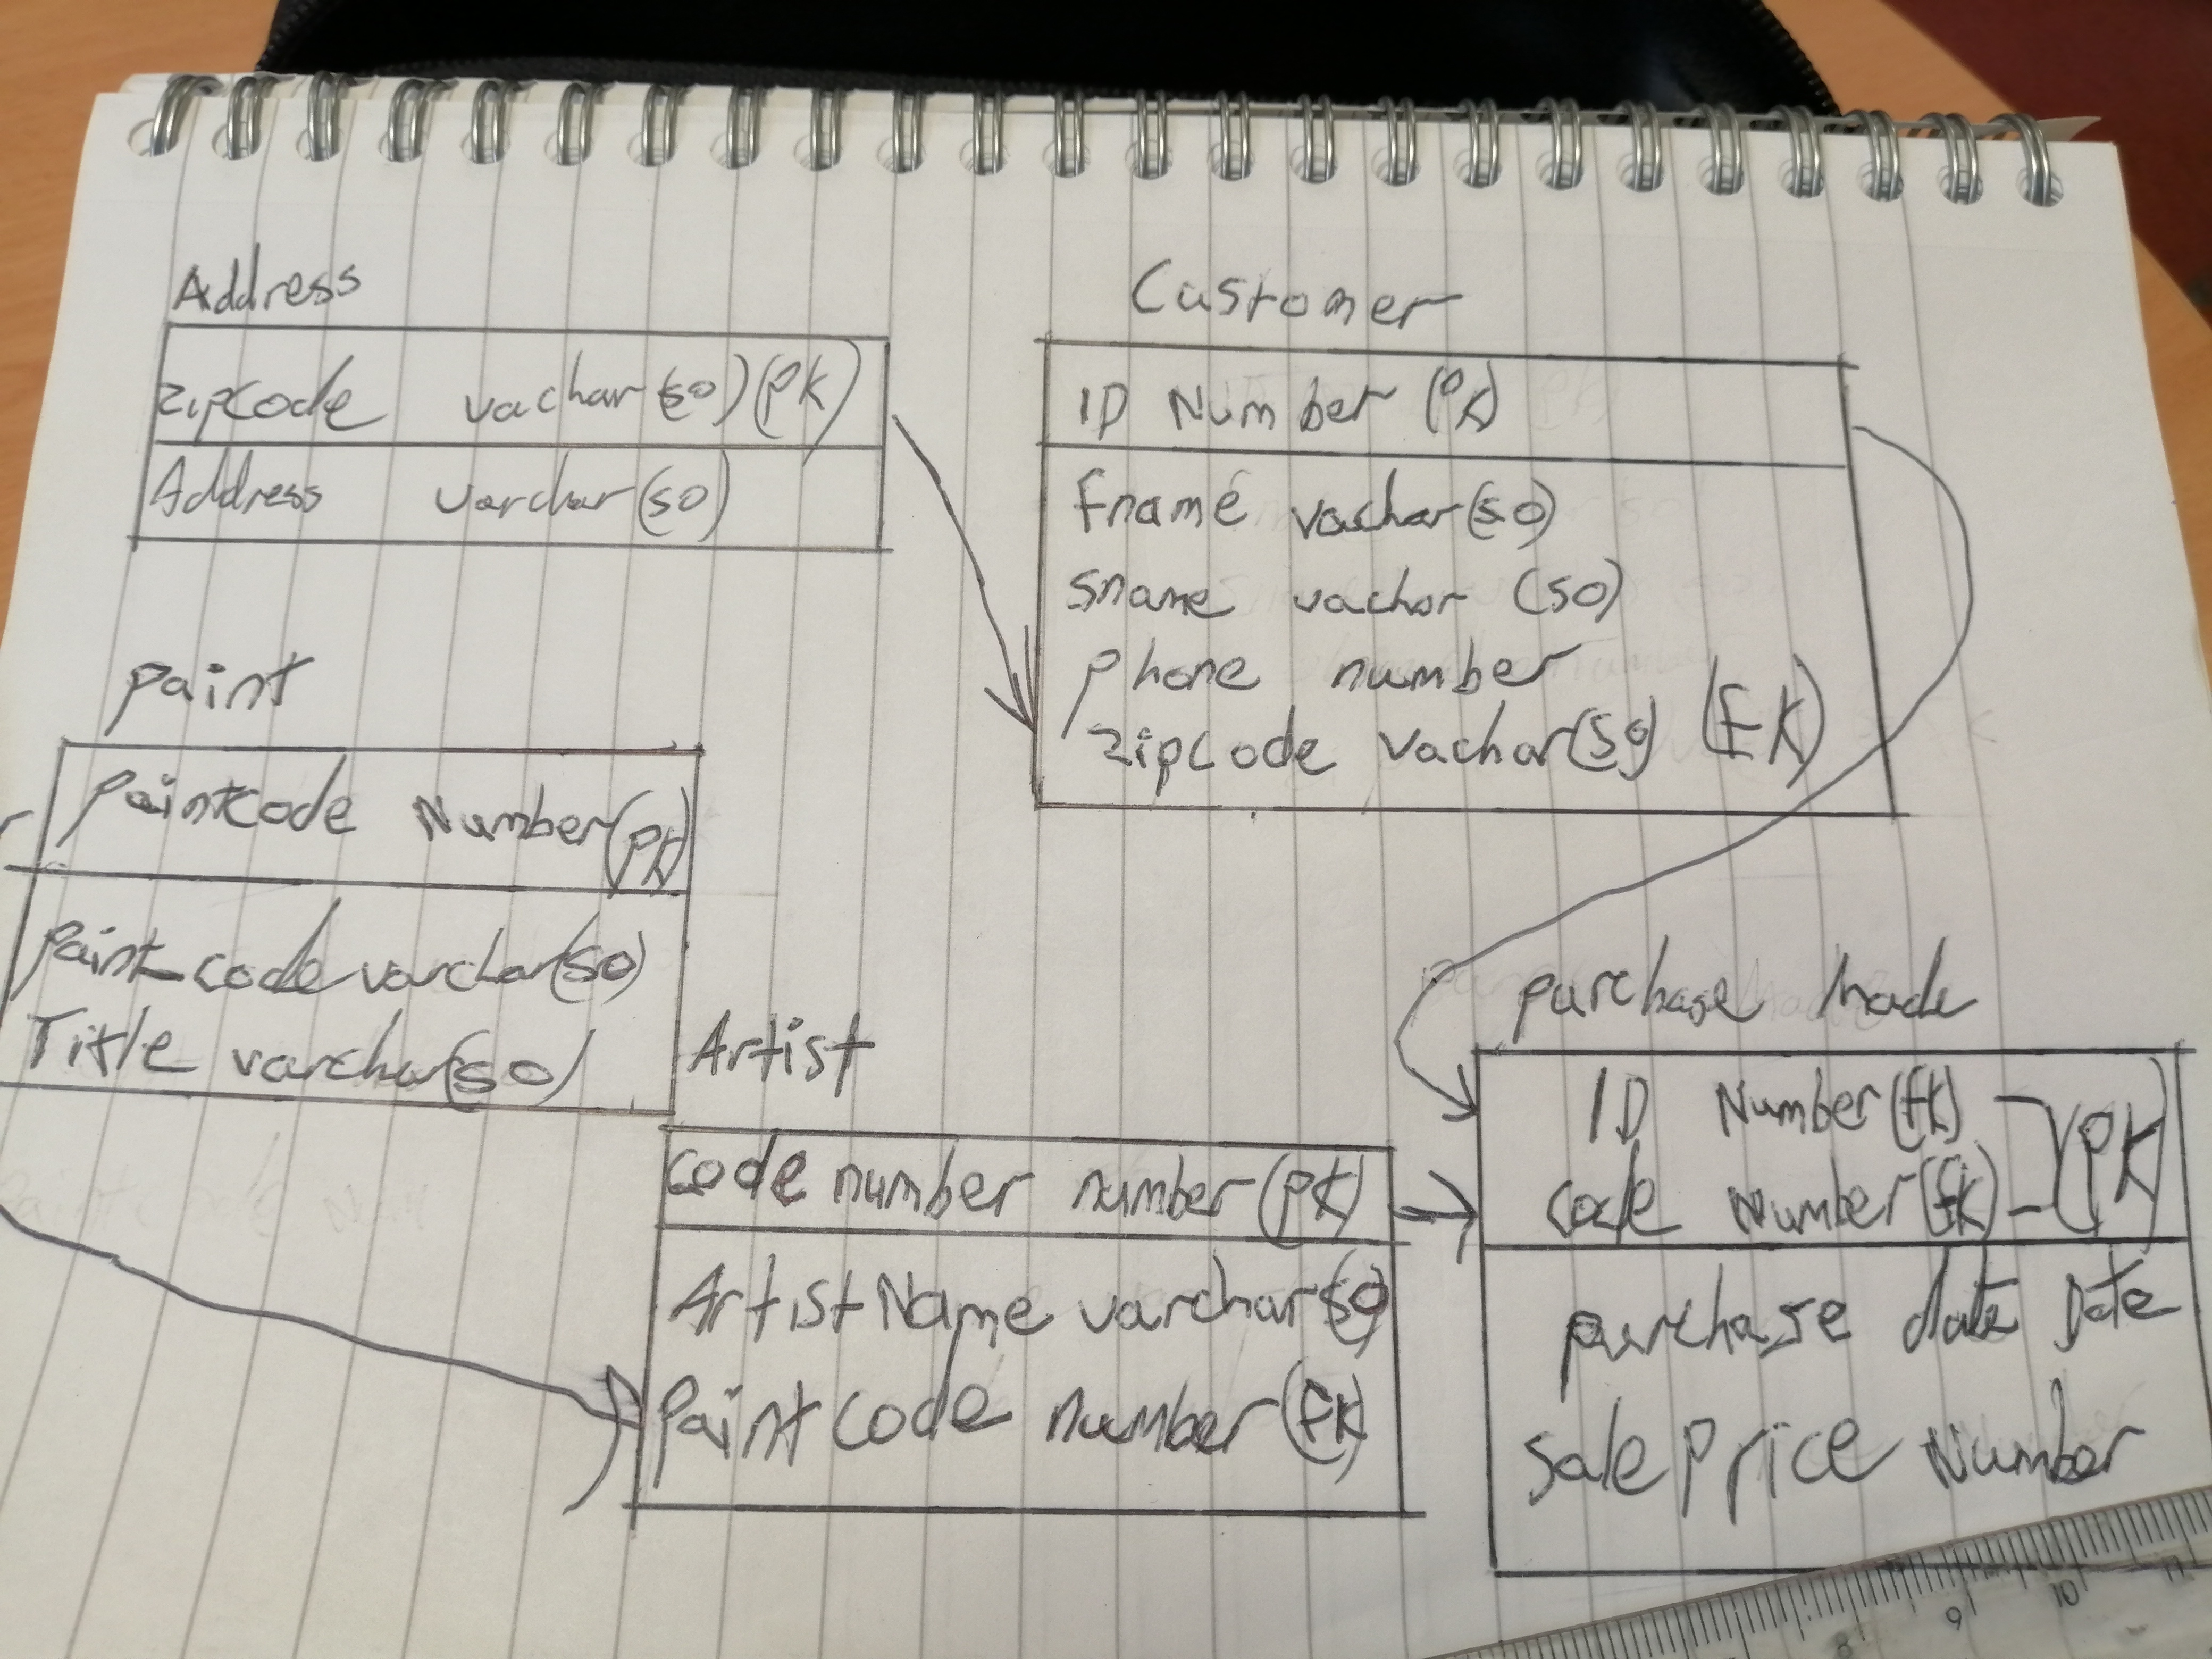 Address
zipcode vachar(50)(PK)
Address varchar(50)
Customer
ID Number (PK)
Fname vachar(50)
Sname vachar (50)
Phone number
zipcode vachar(50) (FK)
paint
Paintcode Number(PK)
Paint_code varchar(50)
Title varchar(50)
Artist
code number number(PK)
Artist Name varchar(50
Paintcode number(FK)
purchase made
ID Number(fk)
code Number(fk)
(PK)
purchase date Date
Sale Price Number
8 9 10 11